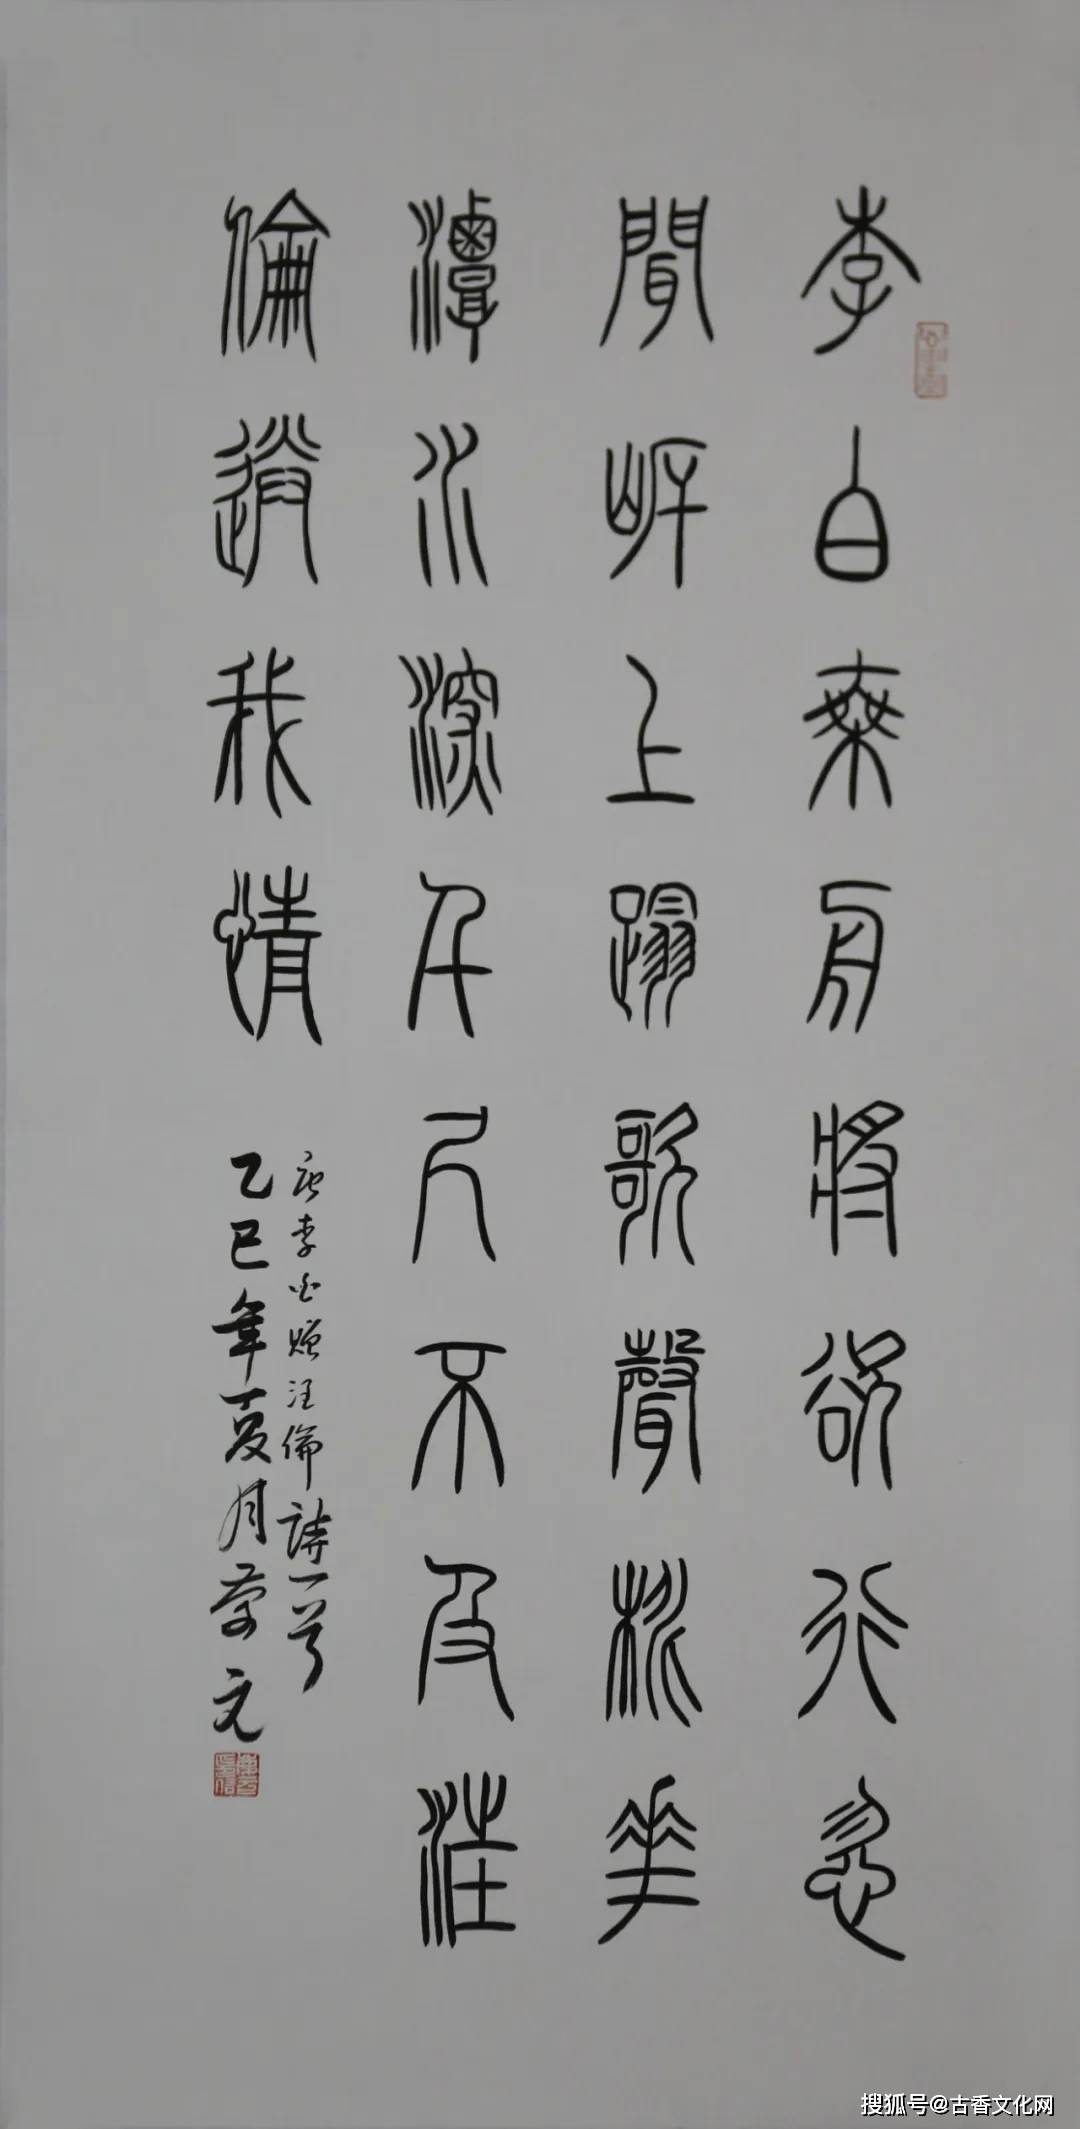 李白乘舟將欲行忽
聞岸上蹋歌聲桃華
潭水深千尺不及汪
倫送我情
唐李白贈汪倫詩一首
乙巳年夏月荣文
搜狐号@古香文化网